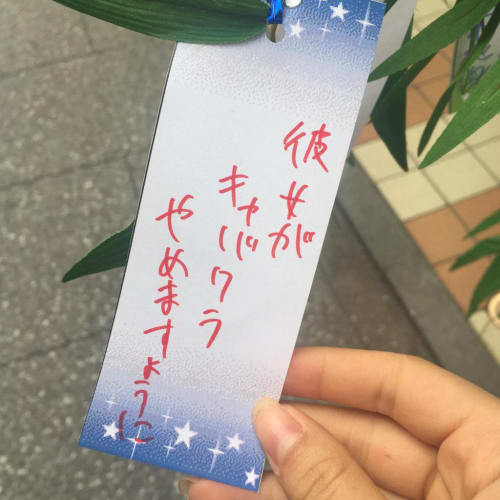 彼女が
キャバクラ
やめますように